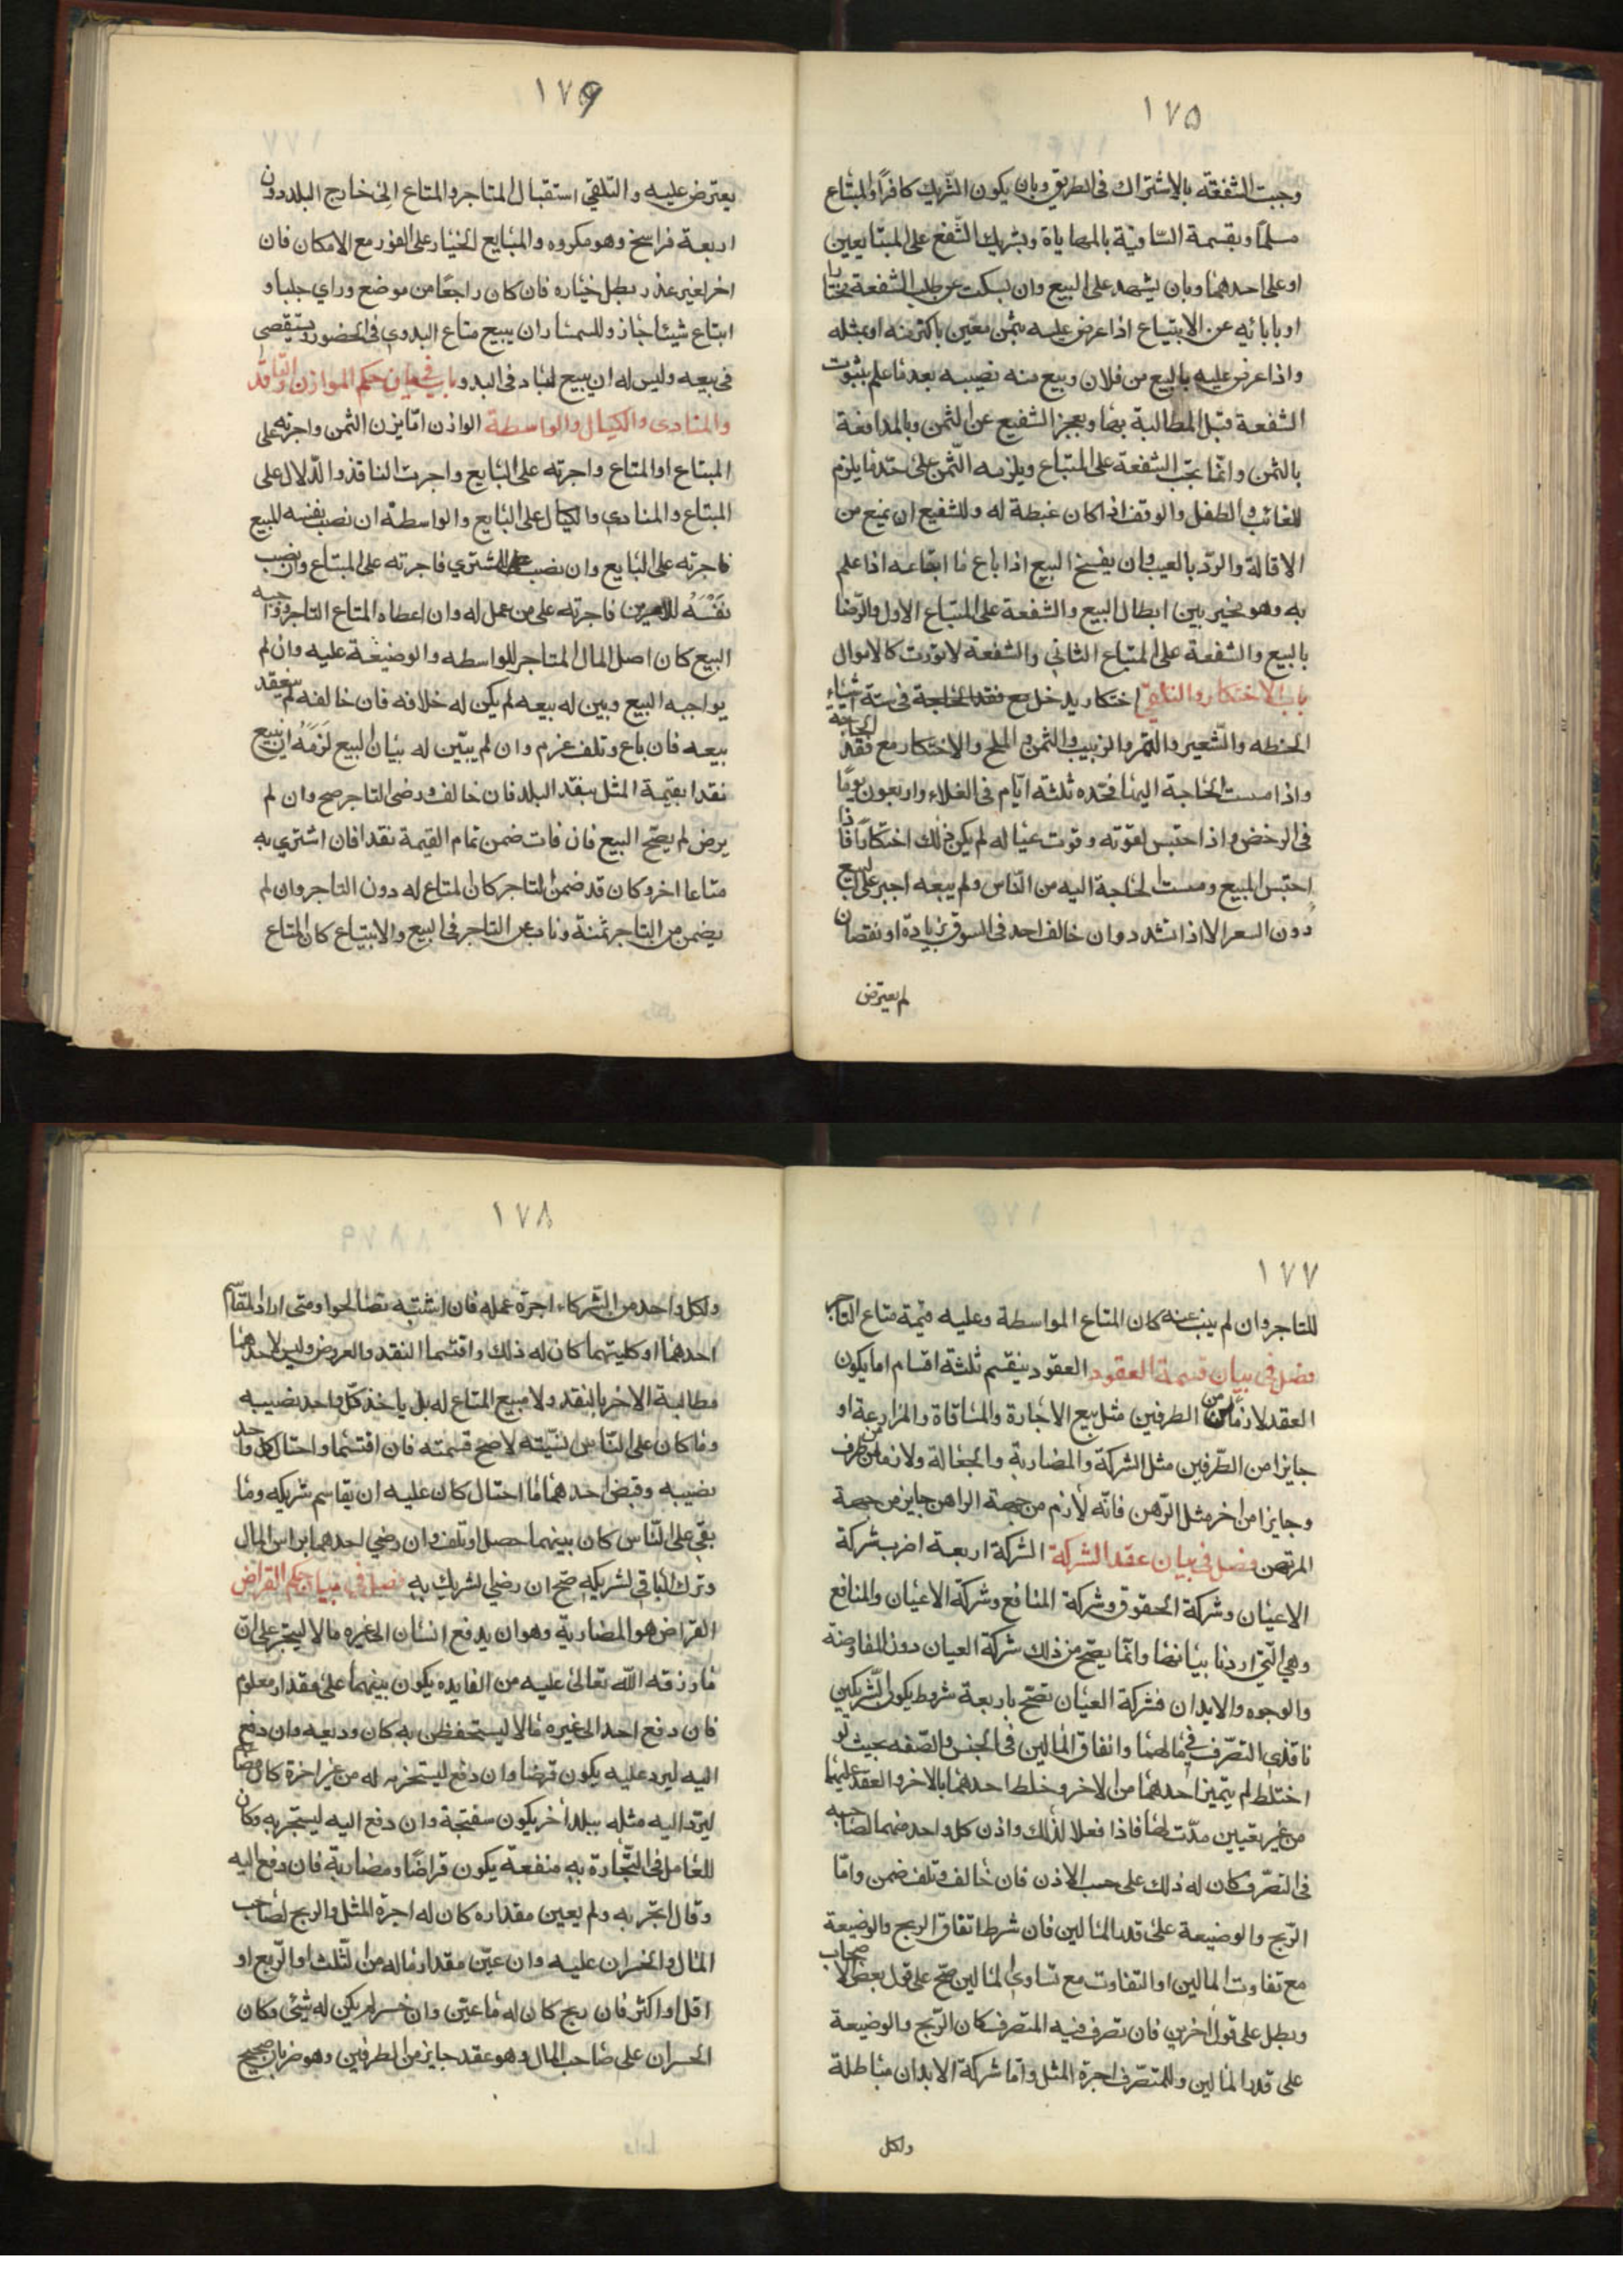 ١٧٥
وجبت الشفعة بالاشتراك فى الطريق وبان يكون الشريك كافرا والمبتاع
مسلما وبقسمة الساقية بالمهاياة وبشريك الشفع على المبتايعين
او على احدهما وبان يشهد على البيع وان يسكت عن طلب الشفعة مختارا
او بابائه عن الابتياع اذا عرض عليه بثمن معين باكثر منه او بمثله
واذا عرض عليه بالبيع من فلان وبيع منه نصيبه بعد ما علم بثبوت
الشفعة قبل المطالبة بها وبعجز الشفيع عن الثمن وبالمدافعة
بالثمن وانما تجب الشفعة على المبتاع ويلزمه الثمن على حد ما يلزم
للغائب والطفل والوقف اذا كان غبطة له وللشفيع ان يمنع من
الاقالة والرد بالعيب وان يفسخ البيع اذا باع ما ابتاعه اذا علم
به وهو مخير بين ابطال البيع والشفعة على المبتاع الاول والرضا
بالبيع والشفعة على المبتاع الثانى والشفعة لا تورث كالاموال
باب الاحتكار والتلقى احتكار يدخل مع فقد الحاجة فى ستة اشياء
الحنطه والشعير والتمر والزبيب والثمن والملح والاحتكار مع فقد الحاجة
واذا مست الحاجة اليها فحده ثلثة ايام فى الغلاء واربعون يوما
فى الرخص واذا احتبس لقوته وقوت عياله لم يكن ذلك احتكارا فاذا
احتبس للبيع ومست الحاجة اليه من الناس ولم يبعه اجبر على البيع
دون السعر الا اذا تشدد وان خالف احد فى السوق بزيادة او نقصان
لم يعترض
١٧٦
يعترض عليه والتلقى استقبال المتاجر والمتاع الى خارج البلد دون
اربعة فراسخ وهو مكروه والمبايع الخيار على الفور مع الامكان فان
اخر لغير عذر بطل خياره فان كان راجعا من موضع وراى جلبا و
ابتاع شيئا جاز وللسمسار ان يبيع متاع البدوى فى الحضور ويستقصى
فى بيعه وليس له ان يبيع لباد فى البدو باب فى بيان حكم الموازن والناقد
والمنادى والكيال والواسطة الوازن اما يزن الثمن واجرته على
المبتاع او المتاع واجرته على البايع واجرت الناقد والدلال على
المبتاع والمنادى والكيال على البايع والواسطة ان نصب نفسه للبيع
فاجرته على البايع وان نصب للمشترى فاجرته على المبتاع وان نصب
نفسه للامرين فاجرته على من عمل له وان اعطاه المتاع التاجر وواجبه
البيع كان اصل المال المتاجر للواسطه والوضيعة عليه وان لم
يواجبه البيع وبين له بيعه لم يكن له خلافه فان خالفه لم ينعقد
بيعه فان باع وتلف غرم وان لم يبين له بيان البيع لزمه ان يبيع
نقدا بقيمة المثل بنقد البلد فان خالف ورضى التاجر صح وان لم
يرض لم يصح البيع فان فات ضمن تمام القيمة نقدا فان اشترى به
متاعا اخر وكان قد ضمن التاجر كان المتاع له دون التاجر وان لم
يضمن من التاجر ثمنه وناب عن التاجر فى البيع والابتياع كان المتاع
١٧٧
للتاجر وان لم ينب عنه كان المتاع المواسطة وعليه قيمة متاع التاجر
فصل فى بيان قسمة العقود العقود ينقسم ثلثة اقسام اما يكون
العقد لازما من الطرفين مثل بيع الاجارة والمساقاة والمزارعة او
جايزا من الطرفين مثل الشركة والمضاربة والجعالة ولازما من طرف
وجايزا من اخر مثل الرهن فانه لازم من جهة الراهن جايز من جهة
المرتهن فصل فى بيان عقد الشركة الشركة اربعة اضرب شركة
الاعيان وشركة الحقوق وشركة المنافع وشركة الاعيان والمنافع
وهى التى اردنا بيانها وانما يصح من ذلك شركة العيان دون المفاوضة
والوجوه والابدان فشركة العيان تصح باربعة شروط يكون الشريكين
نافذى التصرف فى مالهما واتفاق المالين فى الجنس والصفه بحيث لو
اختلط لم يتميز احدهما من الاخر وخلط احدهما بالاخر والعقد عليهما
من غير تعيين مدت لها فاذا فعلا لذلك واذن كل واحد منهما لصاحبه
فى التصرف كان له ذلك على حسب الاذن فان خالف وتلف ضمن واما
الربح والوضيعة على قدر المالين فان شرط اتفاق الربح والوضيعة
مع تفاوت المالين او التفاوت مع تساوى المالين صح على قول بعض الاصحاب
وبطل على قول اخرين فان تصرف فيه المتصرف كان الربح والوضيعة
على قدر المالين وللمتصرف اجرة المثل واما شركة الابدان مباطلة
ولكل
١٧٨
ولكل واحد من الشركاء اجرة عمله فان اشتبه تصالحوا ومتى اراد المقاسم
احدهما او كليتهما كان له ذلك واقتسما النقد والعروض وليس لاحدهما
مطالبة الاخر بالنقد ولا مبيع المتاع له بل ياخذ كل واحد نصيبه
وما كان على الناس لنسيته لا صح قسمته فان اقتسما واحتال كل واحد
نصيبه وقبض احدهما ما احتال كان عليه ان يقاسم شريكه وما
بقى على الناس كان بينهما حصل او تلف وان رضى احدهما براس المال
وترك الباقى لشريكه صح ان رضى الشريك به فصل فى بيان حكم القراض
القراض هو المضاربة وهو ان يدفع انسان الى غيره مالا ليتجر على ان
ما رزقه الله تعالى عليه من الفايده يكون بينهما على مقدار معلوم
فان دفع احد الى غيره مالا ليستحفظن به كان وديعه وان دفع
اليه ليرد عليه يكون قرضا وان دفع ليستحزبه له من غير اخرة كان
ليرد اليه مثله ببلد اخر يكون سفتجة وان دفع اليه ليستجربه وكان
للعامل فى التجارة به منفعة يكون قراضا ومضاربة فان دفع اليه
وقال اتجر به ولم يعين مقداره كان له اجرة المثل والربح لصاحب
المال والخسران عليه وان عين مقدار ماله من الثلث او الربع او
اقل او اكثر فان ربح كان له ما عين وان خسر لم يكن له شئ وكان
الخسران على صاحب المال وهو عقد جايز من الطرفين وهو ضربان صحيح